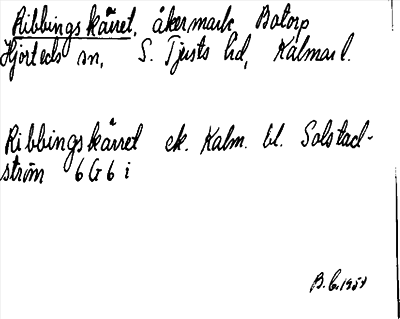 Ribbingskärret, åkermark Botorp
Hjorteds sn, S. Tjusts hd, Kalmar l.
Ribbingskärret ek. Kalm. bl. Solstad-
ström 6G6i